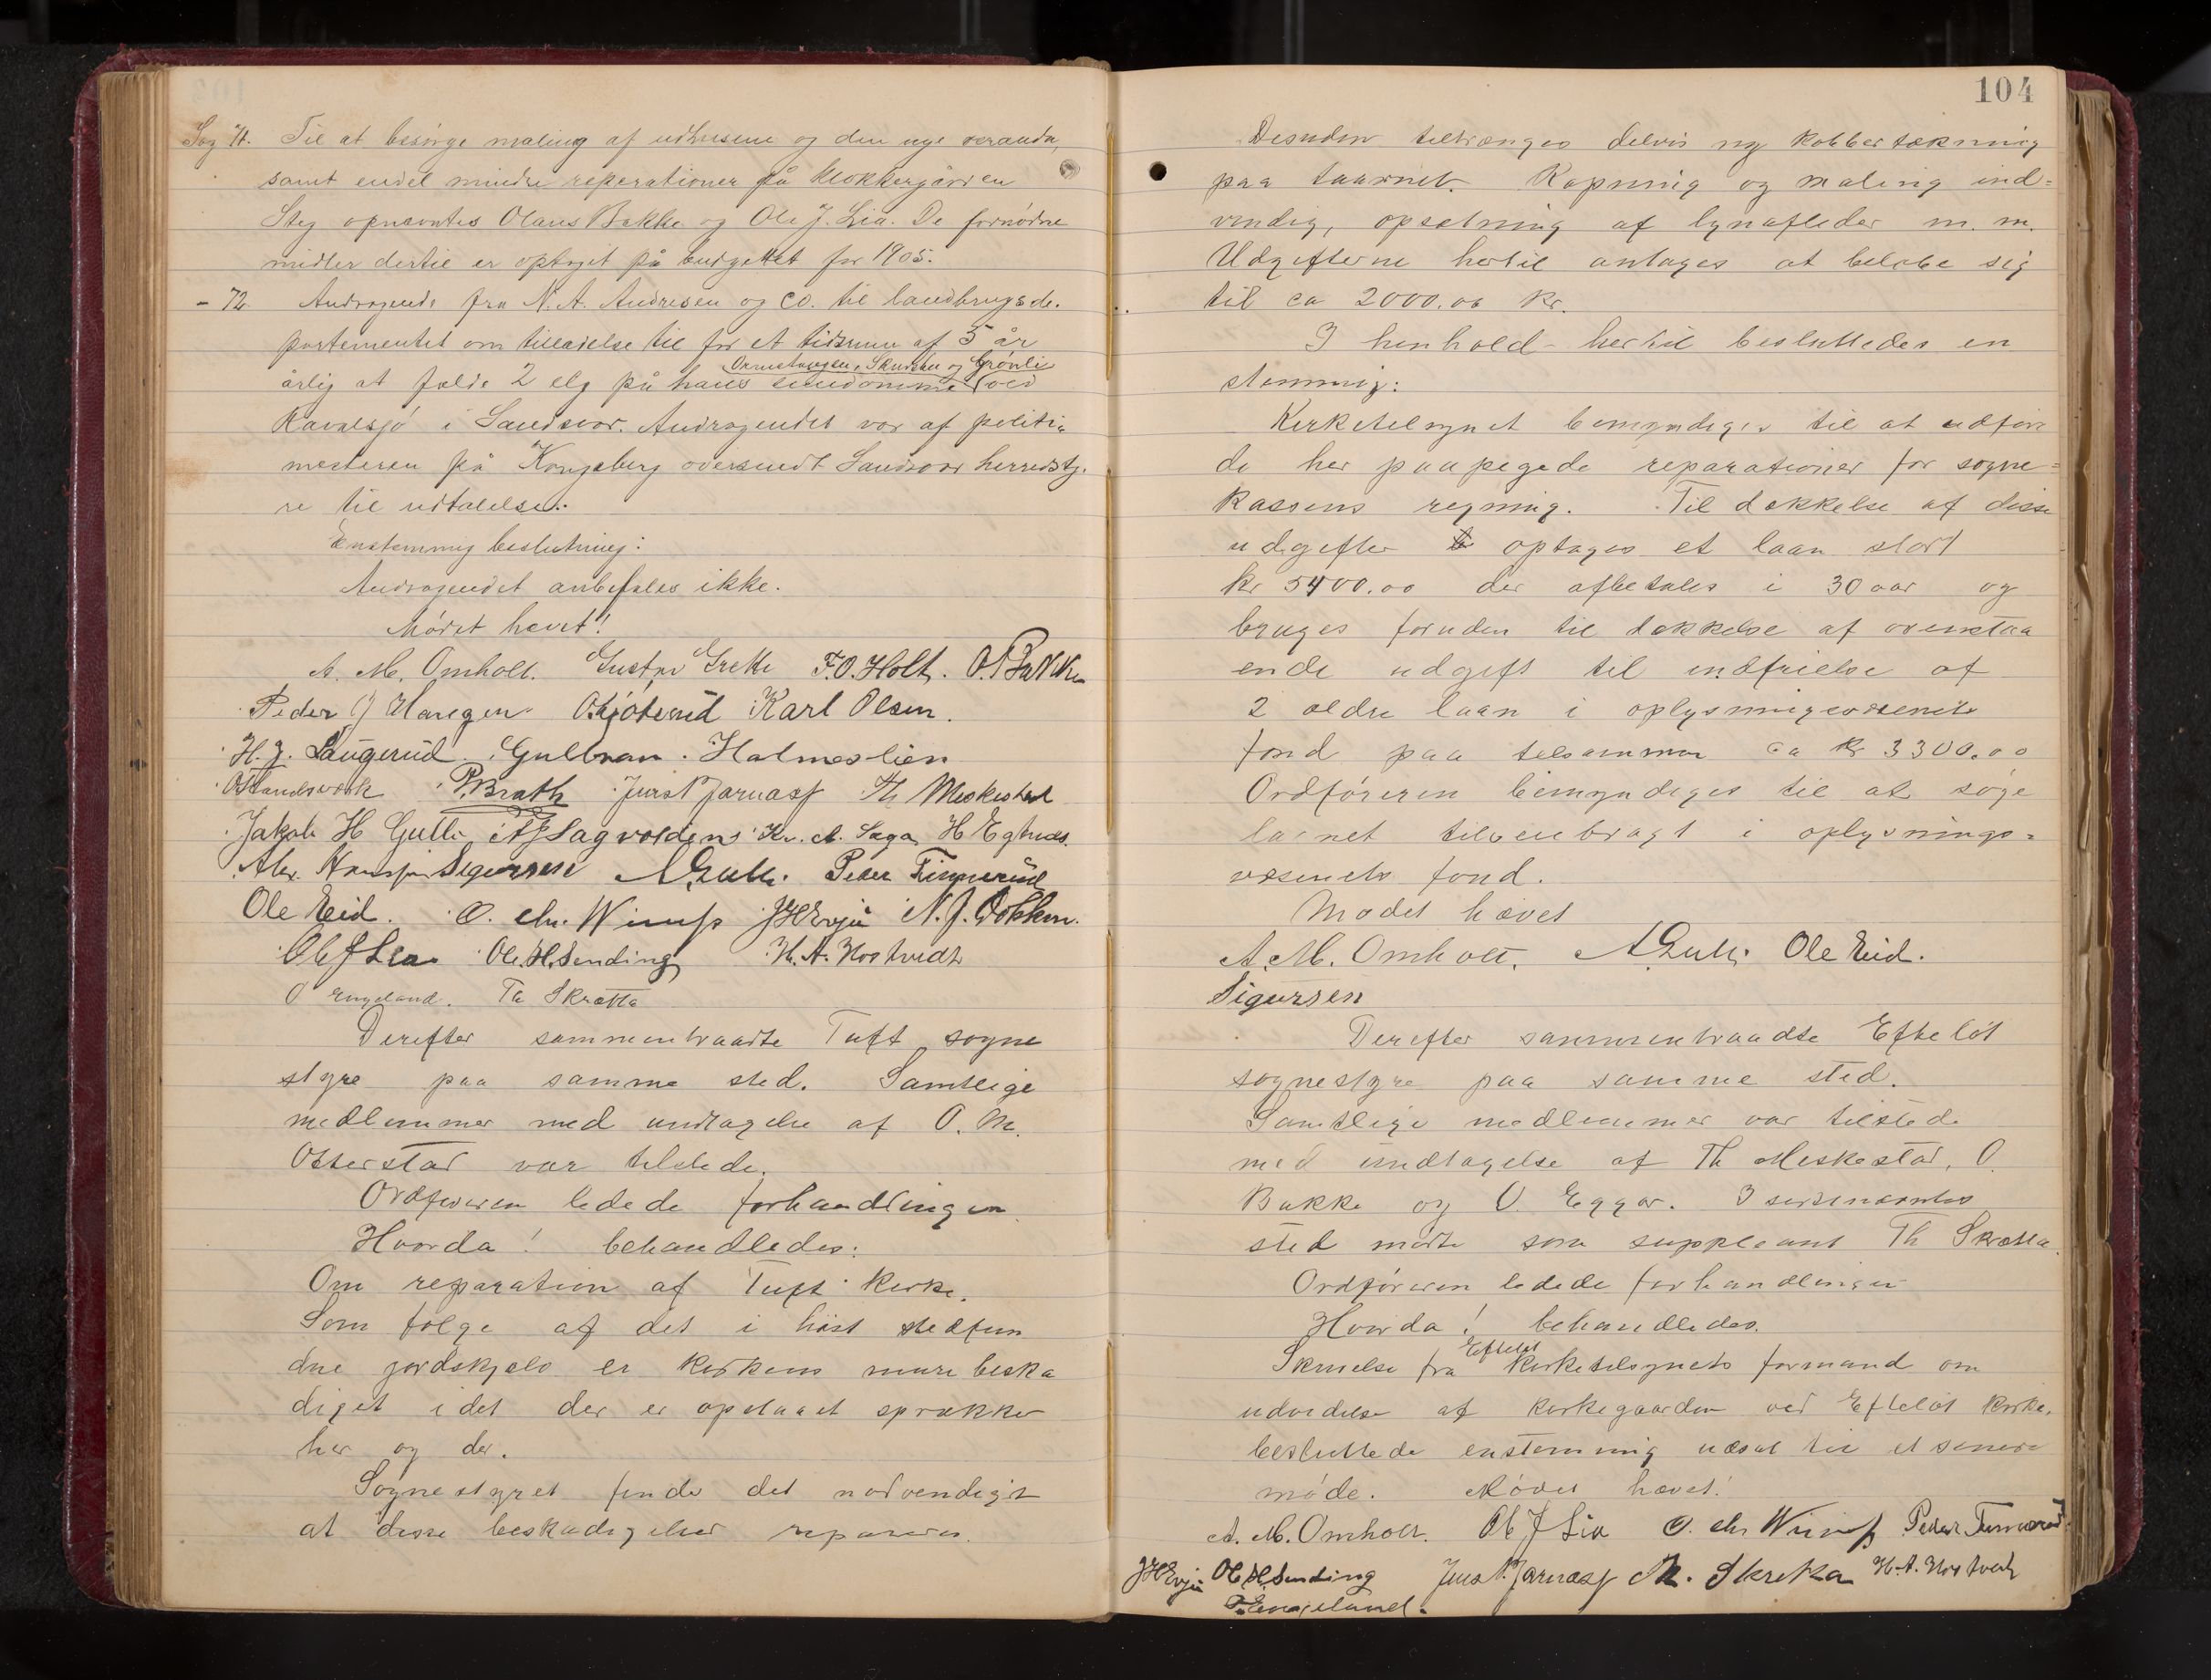 Sag 71. Til at besørge maling af udhusene og den nye veranda,
samt endel mindre reperationer på klokkergården
Steg opnævntes Olaus Bakke og Ole J. Lia. De fornødne
midler dertil er optaget på budgettet for 1905.
- 72. Andragende fra N. A. Andresen og Co. til landbrugsde-
partementet om tilladelse til for et tidsrum af 5 år
Ormetangen, Skurdhu og Grønli
årlig at fælde 2 elg på hans eiendomme ved
Ravalsjø i Sandsvær. Andragendet var af politi-
mesteren på Kongsberg oversendt Sandsvær herredsty-
re til udtalelse.
Enstemmig beslutning:
Andragendet anbefales ikke.
Mødet hævet!
A. M. Omholt. Gustav Grette F. O. Holt. O. Bakke
Peder J Haugen Karl Olsen.
H. J. Laugerud. Gulbran Holmeslien
O Landsverk P. Brath Just Jarnæss Th Meskestad
Jakob H Gulli A J Sagvolden Kr. A. Saga H Eghus
Alex. Sigursen A Gulli. Peder Finnerud
Ole Eid. O. Chr. Wirnes J H Evju N. J. Dokken.
Ole J Lia Ole H. Sending H. A. Hostvedt
O Engeland. Th Skrætta
Derefter sammentraadte Tuft sogne
styre paa samme sted. Samtlige
medlemmer med undtagelse af O. M.
Otterstad var tilstede.
Ordføreren ledede forhandlingen.
Hvorda! behandledes:
Om reparation af Tuft kirke.
Som følge af det i høst stedfun
dne jordskjælv er kirkens mure beska
diget idet der er opstaaet sprækker
her og der.
Sognestyret finder det nødvendigt
at disse beskadigelser repareres.
104
Desuden tiltrænges delvis ny kobbertækning
paa taarnet. Rapning og maling ind=
vendig, opsætning af lynafleder m. m.
Udgifterne hertil antages at beløbe sig
til ca 2000.00 kr.
I henhold hertil besluttedes en
stemmig:
Kirketilsynet bemyndiges til at udføre
de her paapegede reparationer for sogne=
kassens regning. Til dækkelse af disse
udgifter optages et laan stort
kr 5400.00 der afbetales i 30 aar og
bruges foruden til dækkelse af ovenstaa
ende udgift til indfrielse af
2 ældre laan i oplysningsvæsenets
fond paa tilsammen ca kr 3300.00
Ordføreren bemyndiges til at søge
laanet tilveiebragt i oplysnings=
væsenets fond.
Mødet hævet
A. M. Omholt. A Gulli. Ole Eid.
Sigursen
Derefter sammentraadte Efteløt
sognestyre paa samme sted.
Samtlige medlemmer var tilstede
med undtagelse af Th Meskestad, O.
Bakke og O. Eggar. I sidstnævntes
sted mødte som suppleant Th Skrætta.
Ordføreren ledede forhandlingen
Hvorda! behandledes.
Efteløt
Skrivelse fra kirketilsynets formand om
udvidelse af kirkegaarden ved Efteløt kirke,
besluttede enstemmig udsat til et senere
møde. Mødet hævet!
A. M. Omholt. Ole J Lia O. Chr Wirnes Peder Finnerud
J H Evju Ole H. Sending Just Jarnæss Th. Skretta H. A. Hostvedt
O Engeland.